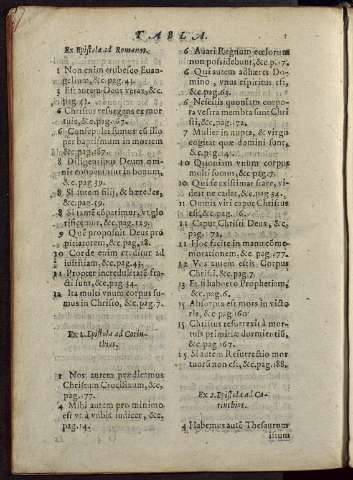 TABLA.
Ex Epistola ad Romanos.
1 Non enim erubesco Euan-
gelium, &c. pag. 41.
3 Est autem Deus verax, &c.
pag. 43.
6 Christus resurgens ex mor
tuis, &c. pag. 167.
6 Consepulti sumus cũ illo
per baptismum in mortem
&c. pag. 167.
8 Diligentibus Deum om-
nia cooperantur in bonum,
&c. pag. 59.
8 Si autem filij, & hæredes,
&c. pag. 59.
8 Si tamẽ cõpatimur, vt glo
rificemur, &c. pag. 129.
9 Quẽ proposuit Deus pro
pitiatorem, &c. pag. 28.
10 Corde enim creditur ad
iustitiam, &c. pag. 43.
11 Propter incredulitatẽ fra-
cti sunt, &c. pag. 54.
12 Ita multi vnum corpus su-
mus in Christo, &c. pag. 7.
Ex 1. Epistola ad Corin-
thios.
1 Nos autem prædicamus
Christum Crucifixum, &c.
pag. 177.
4 Mihi autem pro minimo
est vt à vobis iudicer, &c.
pag. 14.
6 Auari Regnum cœlorum
non possidebunt, &c. p. 7.
6 Qui autem adhæret Do-
mino, vnus spiritus est,
&c. pag. 63.
6 Nescitis quoniam corpo-
ra vestra membra sunt Chri
sti, &c. pag. 72.
7 Mulier in nupta, & virgo
cogitat quæ domini sunt,
&c. pag. 14.
10 Quoniam vnum corpus
multi sumus, &c. pag. 7.
10 Qui se existimat stare, vi-
deat ne cadat, &c. pag. 54.
11 Omnis viri caput Christus
est, &c. pag. 16.
11 Caput Christi Deus, &c.
pag. 72.
11 Hoc facite in meam cõme-
morationem, &c. pag. 177.
12 Vos autem estis Corpus
Christi, &c. pag. 7.
13 Et si habuero Prophetiam,
&c. pag. 6.
15 Absorpta est mors in victo
ria, &c. pag. 160
15 Christus resurrexit à mor-
tuis primitiæ dormientiũ,
&c. pag. 167.
15 Si autem Resurrectio mor
tuorũ non est, &c. pag. 188.
Ex 2. Epistola ad Co-
rinthios.
4 Habemus autẽ Thesaurum
istum